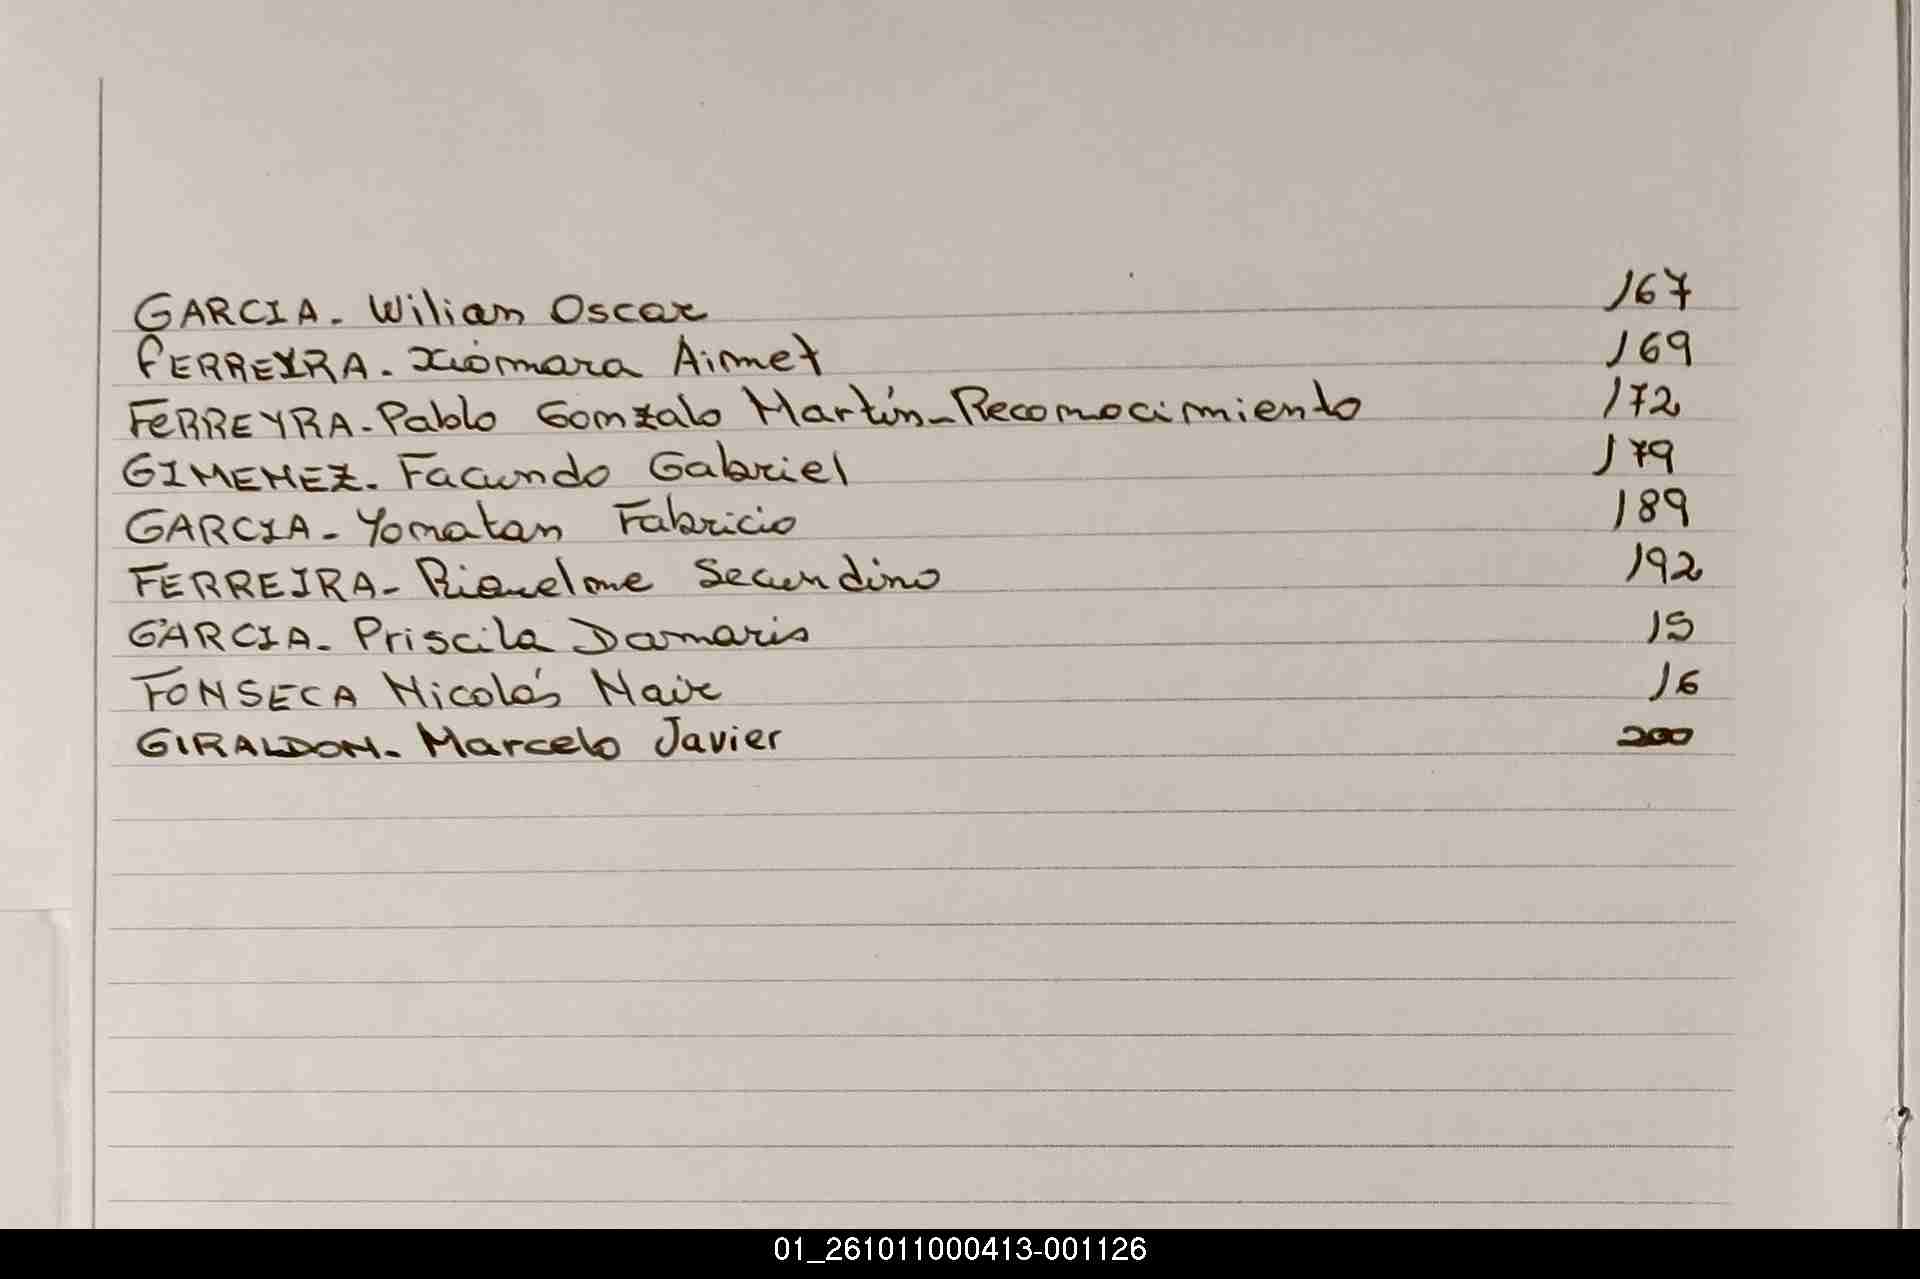 GARCIA. Wilian Oscar 167
FERREYRA. Xiomara Aimet 169
FERREYRA. Pablo Gonzalo Martín_Reconocimiento 172
GIMENEZ. Facundo Gabriel 179
GARCIA - Yonatan Fabricio 189
FERREIRA - Riquelme Secundino 192
GARCIA. Priscila Damaris 15
FONSECA Nicolás Nair 16
GIRALDON. Marcelo Javier 200
01_261011000413-001126